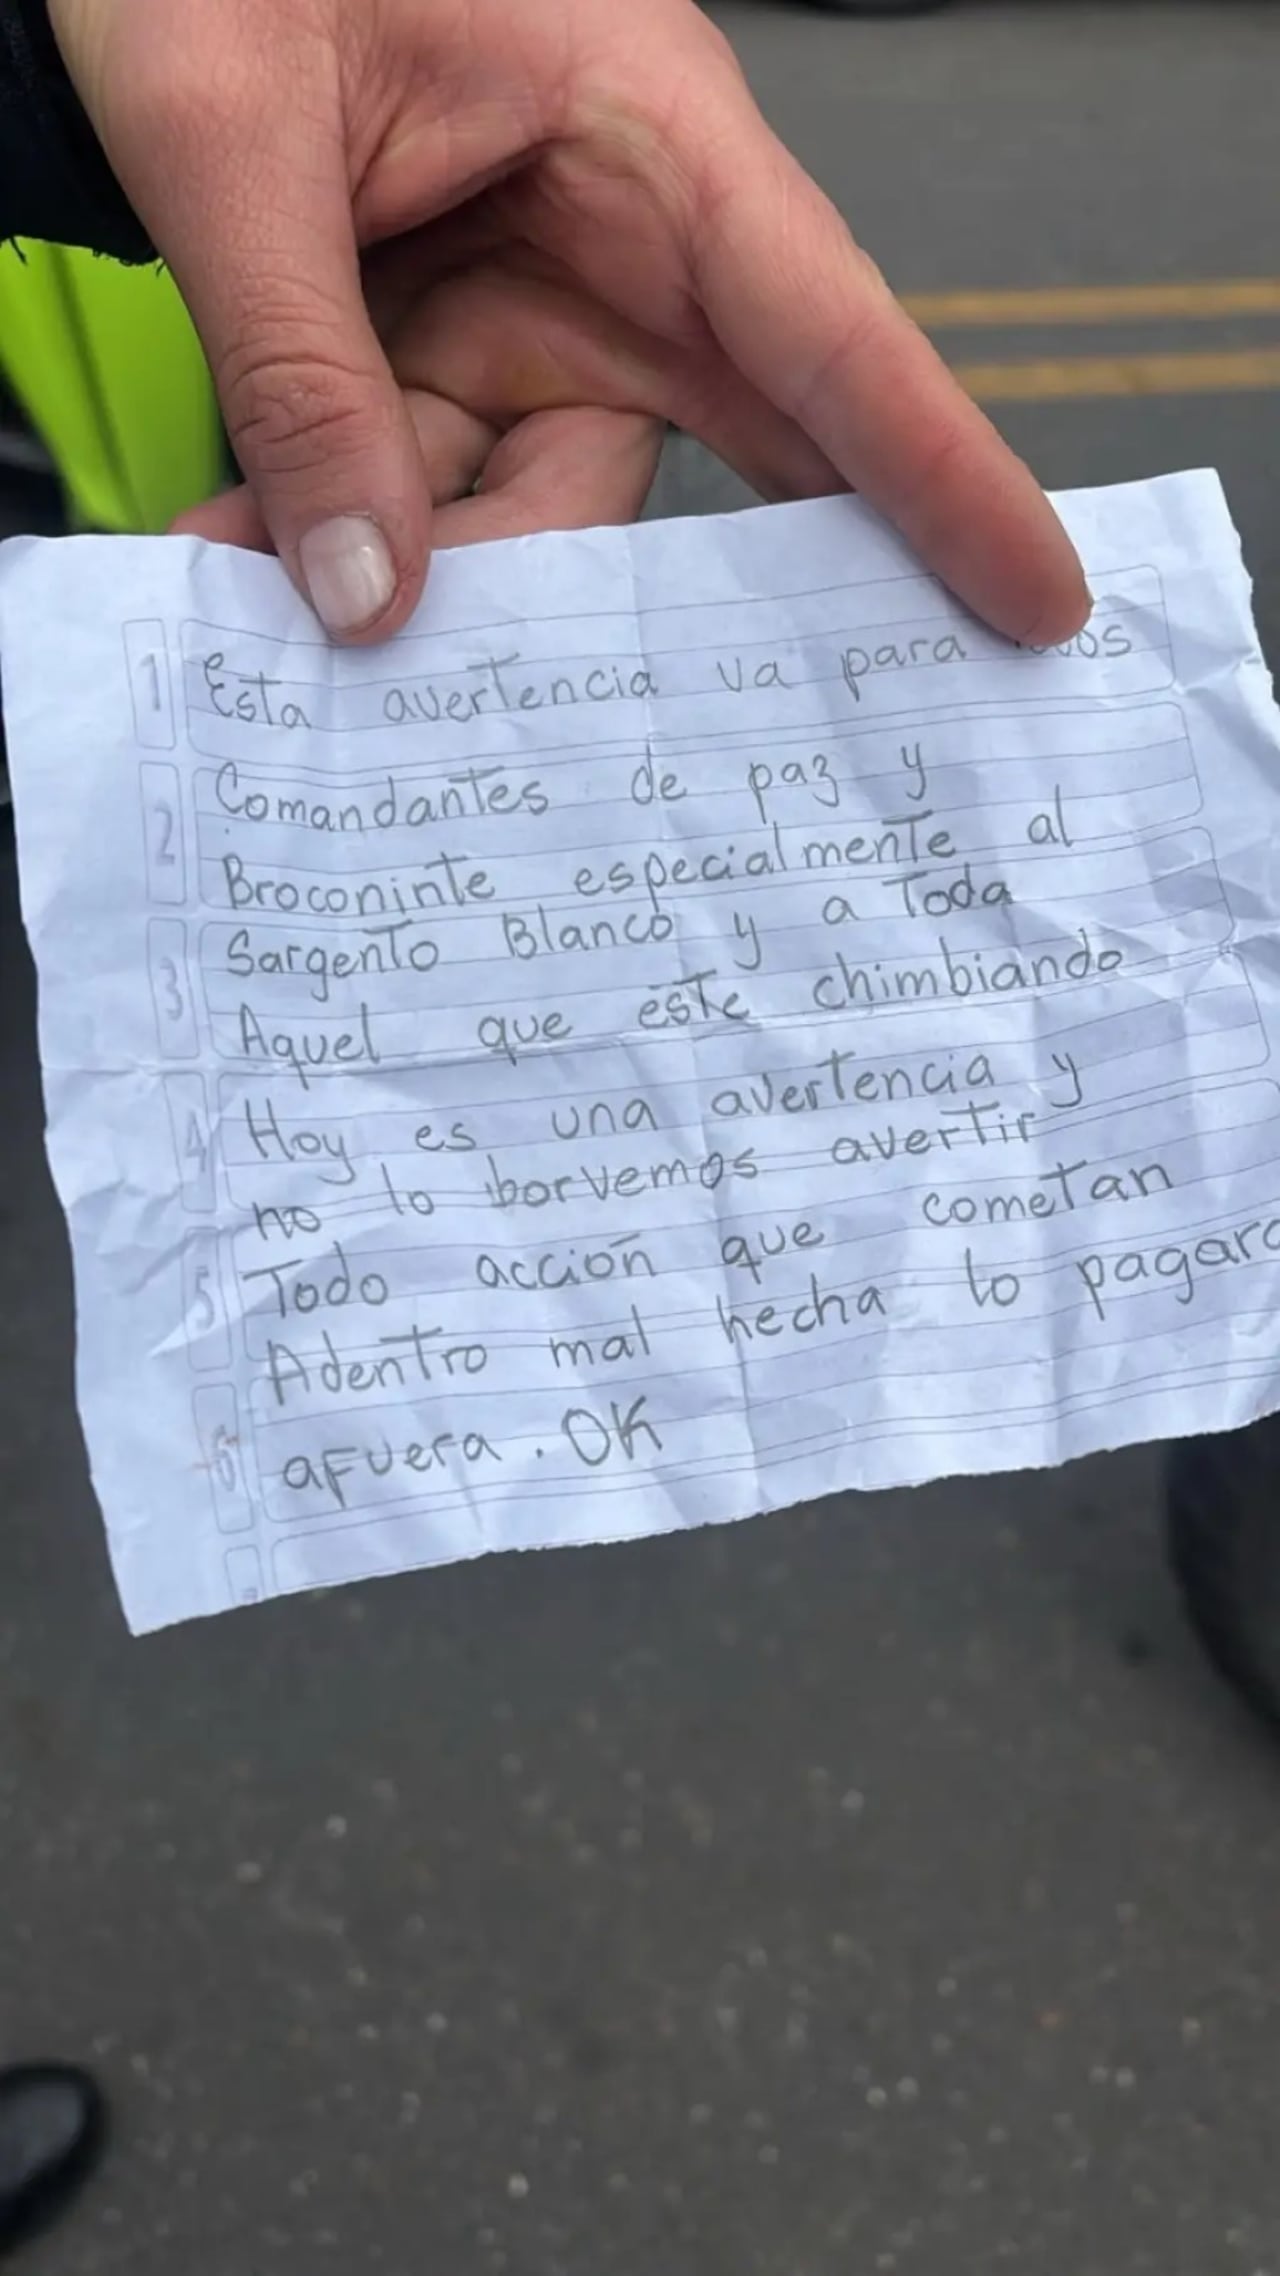 1 Esta avertencia va para
2 Comandantes de paz y
Broconinte especialmente al
3 Sargento Blanco y a Toda
Aquel que este chimbiando
4 Hoy es una avertencia y
no lo borvemos avertir
5 Todo acción que cometan
Adentro mal hecha lo pagara
6 afuera. OK